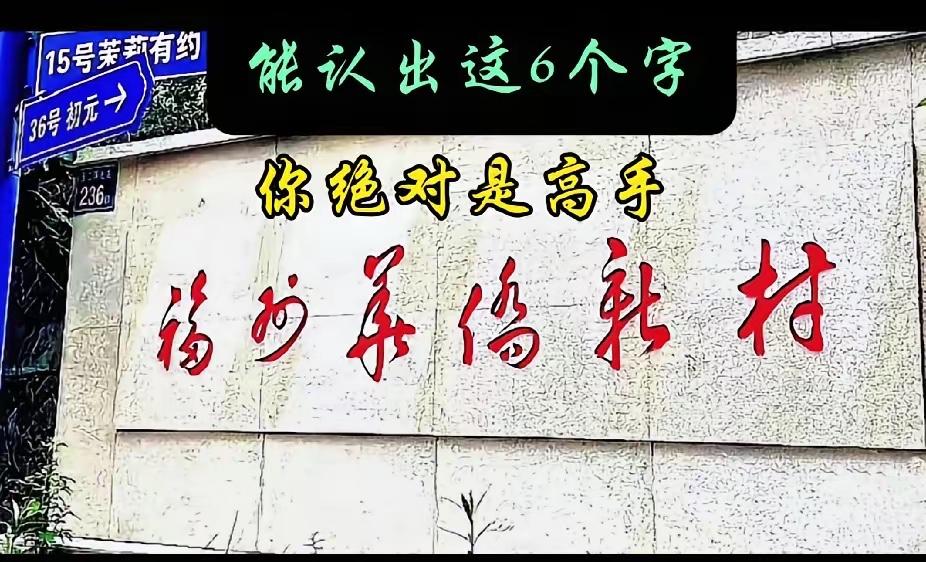 能认出这6个字
15号茉莉有约
36号 初元→
你绝对是高手
236
福州華僑新村